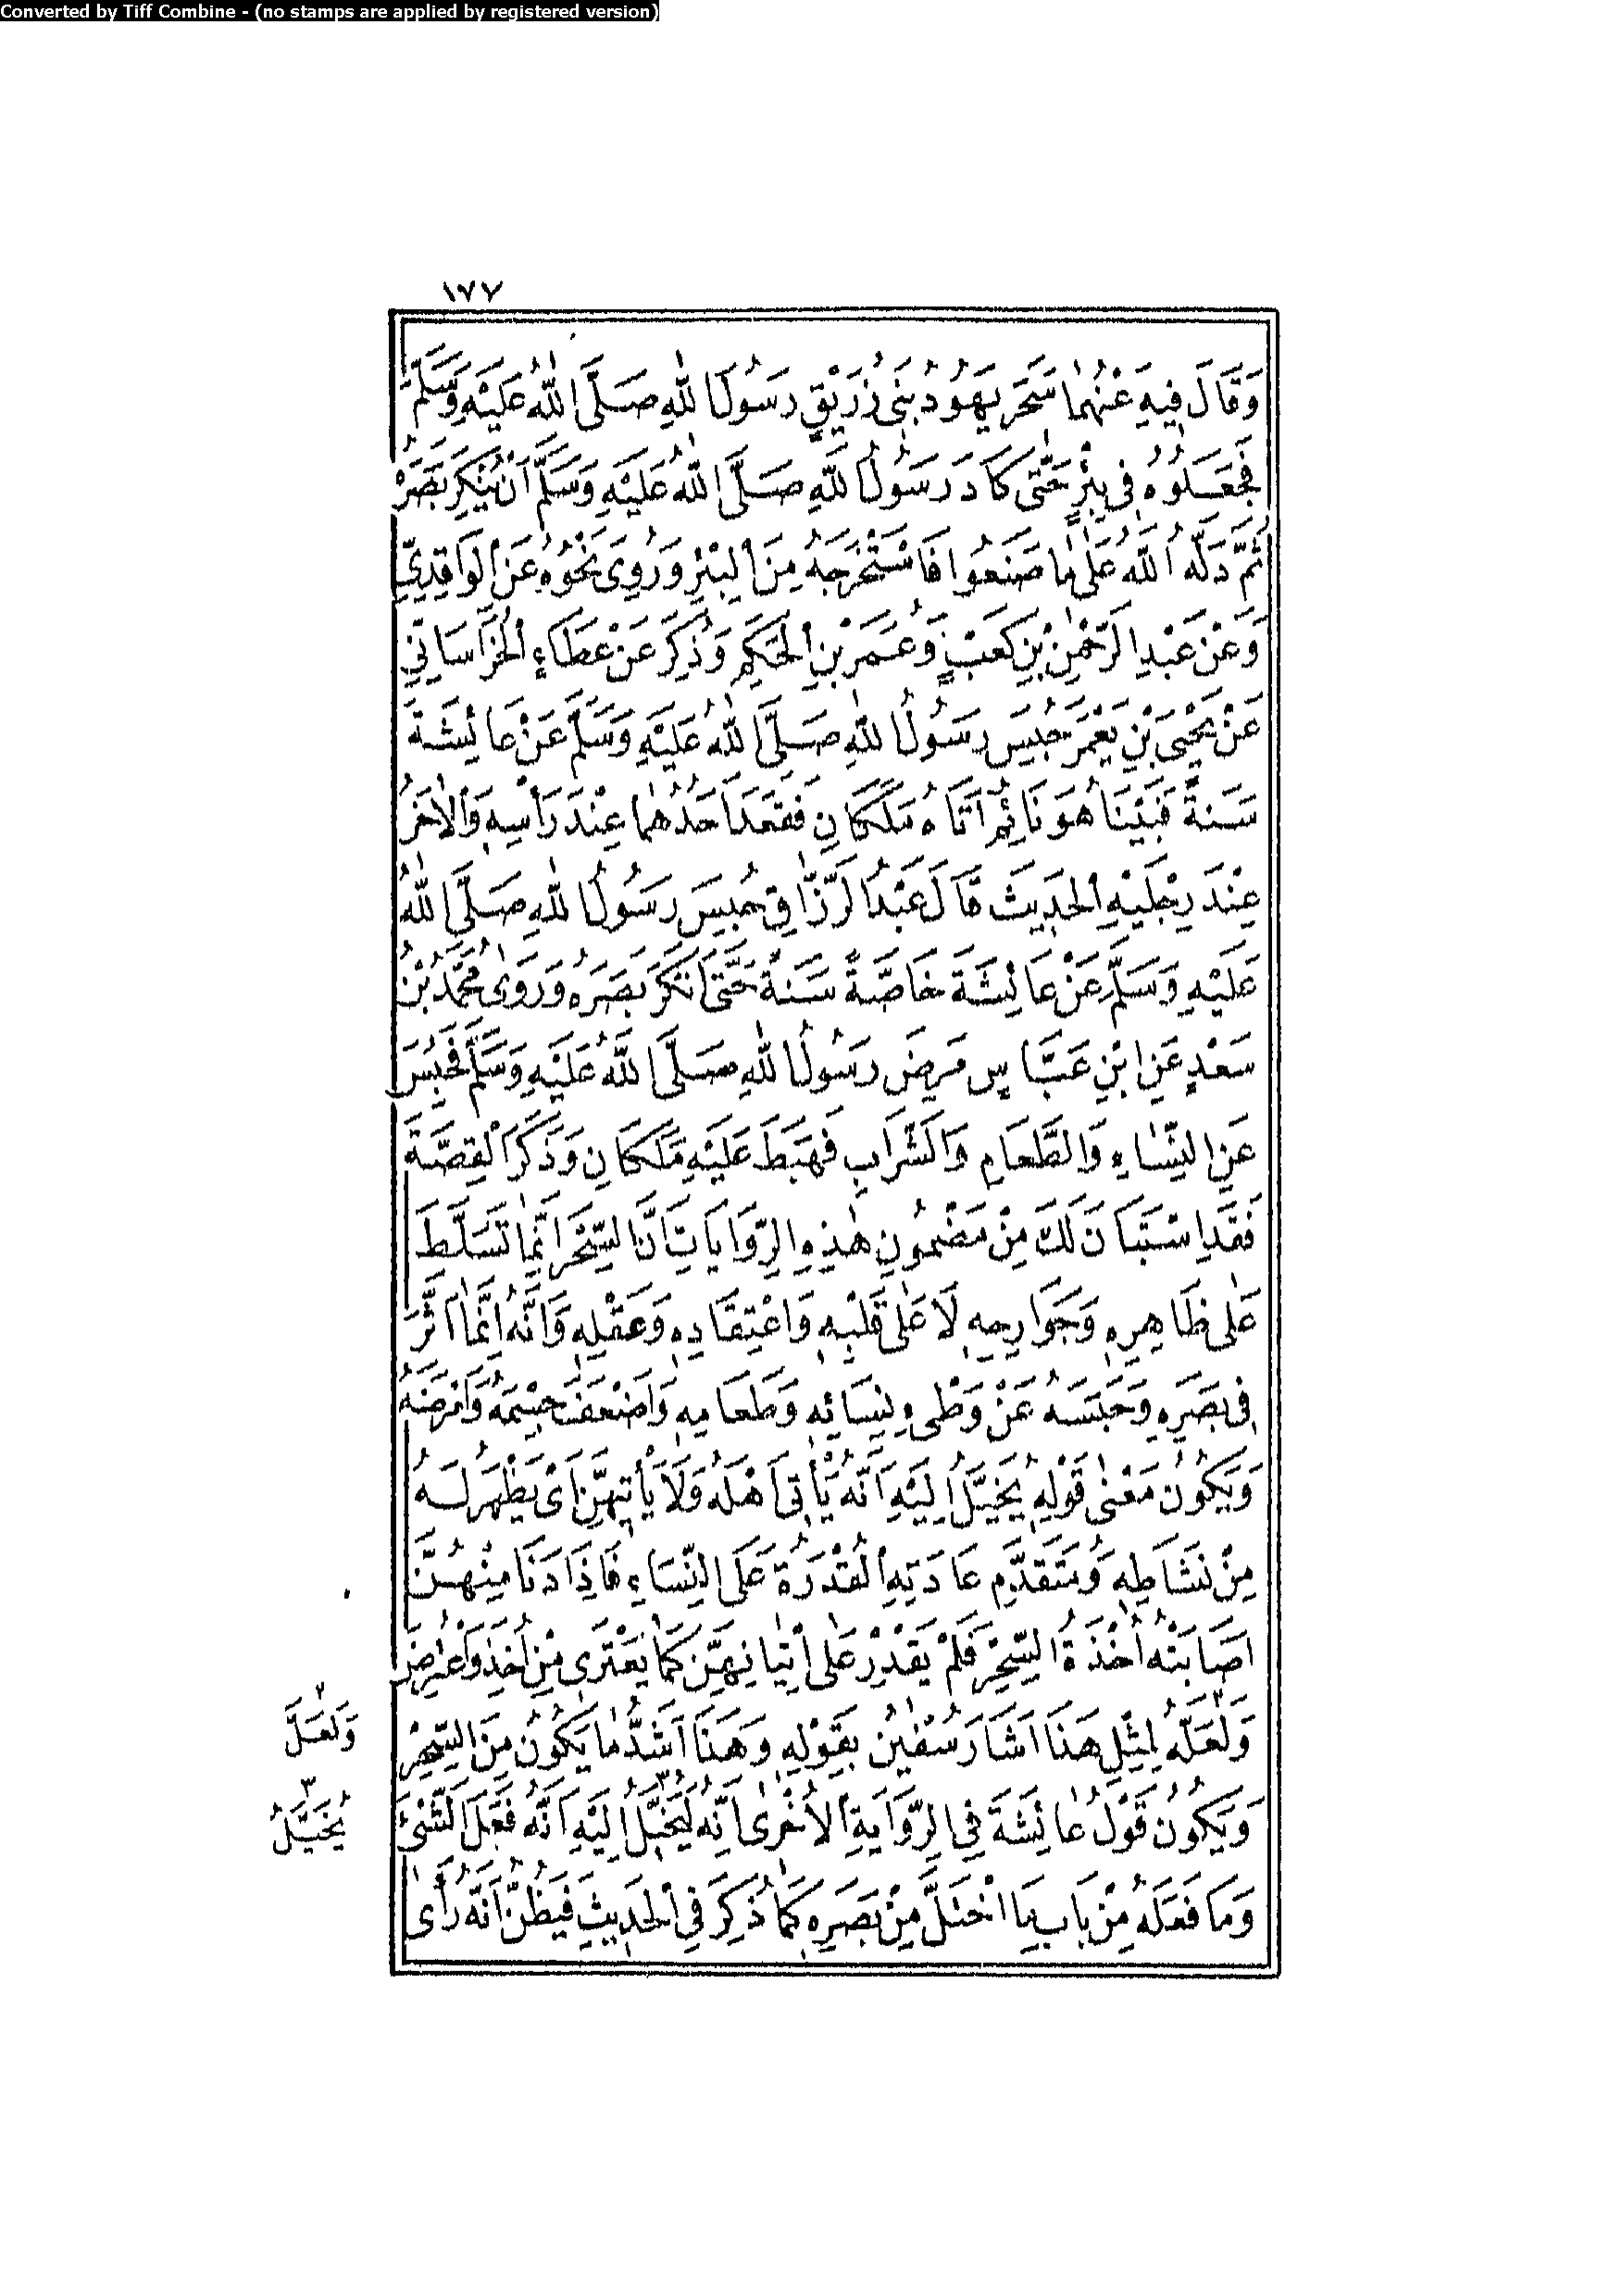 Converted by Tiff Combine - (no stamps are applied by registered version)
١٧٧
وَقَالَ فِيهِ عَنْهُمَا سَحَرَ يَهُودُ بَنِي زُرَيْقٍ رَسُولَ اللهِ صَلَّى اللهُ عَلَيْهِ وَسَلَّمَ
فَجَعَلُوهُ فِي بِئْرٍ حَتَّى كَادَ رَسُولُ اللهِ صَلَّى اللهُ عَلَيْهِ وَسَلَّمَ أَنْ يُنْكِرَ بَصَرَهُ
ثُمَّ دَلَّهُ اللهُ عَلَى مَا صَنَعُوا فَاسْتَخْرَجَهُ مِنَ الْبِئْرِ وَرُوِيَ نَحْوُهُ عَنِ الْوَاقِدِيِّ
وَعَنْ عَبْدِ الرَّحْمٰنِ بْنِ كَعْبٍ وَعُمَرَ بْنِ الْحَكَمِ وَذُكِرَ عَنْ عَطَاءٍ الْخُرَاسَانِيِّ
عَنْ يَحْيَى بْنِ يَعْمَرَ حُبِسَ رَسُولُ اللهِ صَلَّى اللهُ عَلَيْهِ وَسَلَّمَ عَنْ عَائِشَةَ
سَنَةً فَبَيْنَا هُوَ نَائِمٌ أَتَاهُ مَلَكَانِ فَقَعَدَ أَحَدُهُمَا عِنْدَ رَأْسِهِ وَالْاٰخَرُ
عِنْدَ رِجْلَيْهِ الْحَدِيثَ قَالَ عَبْدُ الرَّزَّاقِ حُبِسَ رَسُولُ اللهِ صَلَّى اللهُ
عَلَيْهِ وَسَلَّمَ عَنْ عَائِشَةَ خَاصَّةً سَنَةً حَتَّى أَنْكَرَ بَصَرَهُ وَرَوٰى مُحَمَّدُ بْنُ
سَعْدٍ عَنِ ابْنِ عَبَّاسٍ مَرِضَ رَسُولُ اللهِ صَلَّى اللهُ عَلَيْهِ وَسَلَّمَ فَحُبِسَ
عَنِ النِّسَاءِ وَالطَّعَامِ وَالشَّرَابِ فَهَبَطَ عَلَيْهِ مَلَكَانِ وَذَكَرَ الْقِصَّةَ
فَقَدِ اسْتَبَانَ لَكَ مِنْ مَضْمُونِ هٰذِهِ الرِّوَايَاتِ أَنَّ السِّحْرَ إِنَّمَا تَسَلَّطَ
عَلٰى ظَاهِرِهِ وَجَوَارِحِهِ لَا عَلٰى قَلْبِهِ وَاعْتِقَادِهِ وَعَقْلِهِ وَأَنَّهُ إِنَّمَا أَثَّرَ
فِي بَصَرِهِ وَحَبَسَهُ عَنْ وَطْىءِ نِسَائِهِ وَطَعَامِهِ وَأَضْعَفَ جِسْمَهُ وَأَمْرَضَهُ
وَيَكُونُ مَعْنٰى قَوْلِهِ يُخَيَّلُ إِلَيْهِ أَنَّهُ يَأْتِي أَهْلَهُ وَلَا يَأْتِيهِنَّ أَىْ يَظْهَرُ لَهُ
مِنْ نَشَاطِهِ وَمُتَقَدِّمِ عَادَتِهِ الْقُدْرَةُ عَلَى النِّسَاءِ فَإِذَا دَنَا مِنْهُنَّ
أَصَابَتْهُ أُخْذَةُ السِّحْرِ فَلَمْ يَقْدِرْ عَلٰى إِتْيَانِهِنَّ كَمَا يَعْتَرِى مَنْ أُخِذَ وَاعْتُرِضَ
وَلَعَلَّهُ لِمِثْلِ هٰذَا أَشَارَ سُفْيٰنُ بِقَوْلِهِ وَهٰذَا أَشَدُّ مَا يَكُونُ مِنَ السِّحْرِ
وَلَعَلَّ
وَيَكُونُ قَوْلُ عَائِشَةَ فِي الرِّوَايَةِ الْأُخْرٰى إِنَّهُ لَيُخَيَّلُ إِلَيْهِ أَنَّهُ فَعَلَ الشَّىْءَ
يُخَيَّلُ
وَمَا فَعَلَهُ مِنْ بَابِ مَا اخْتَلَّ مِنْ بَصَرِهِ كَمَا ذُكِرَ فِي الْحَدِيثِ فَيَظُنُّ أَنَّهُ رَأٰى